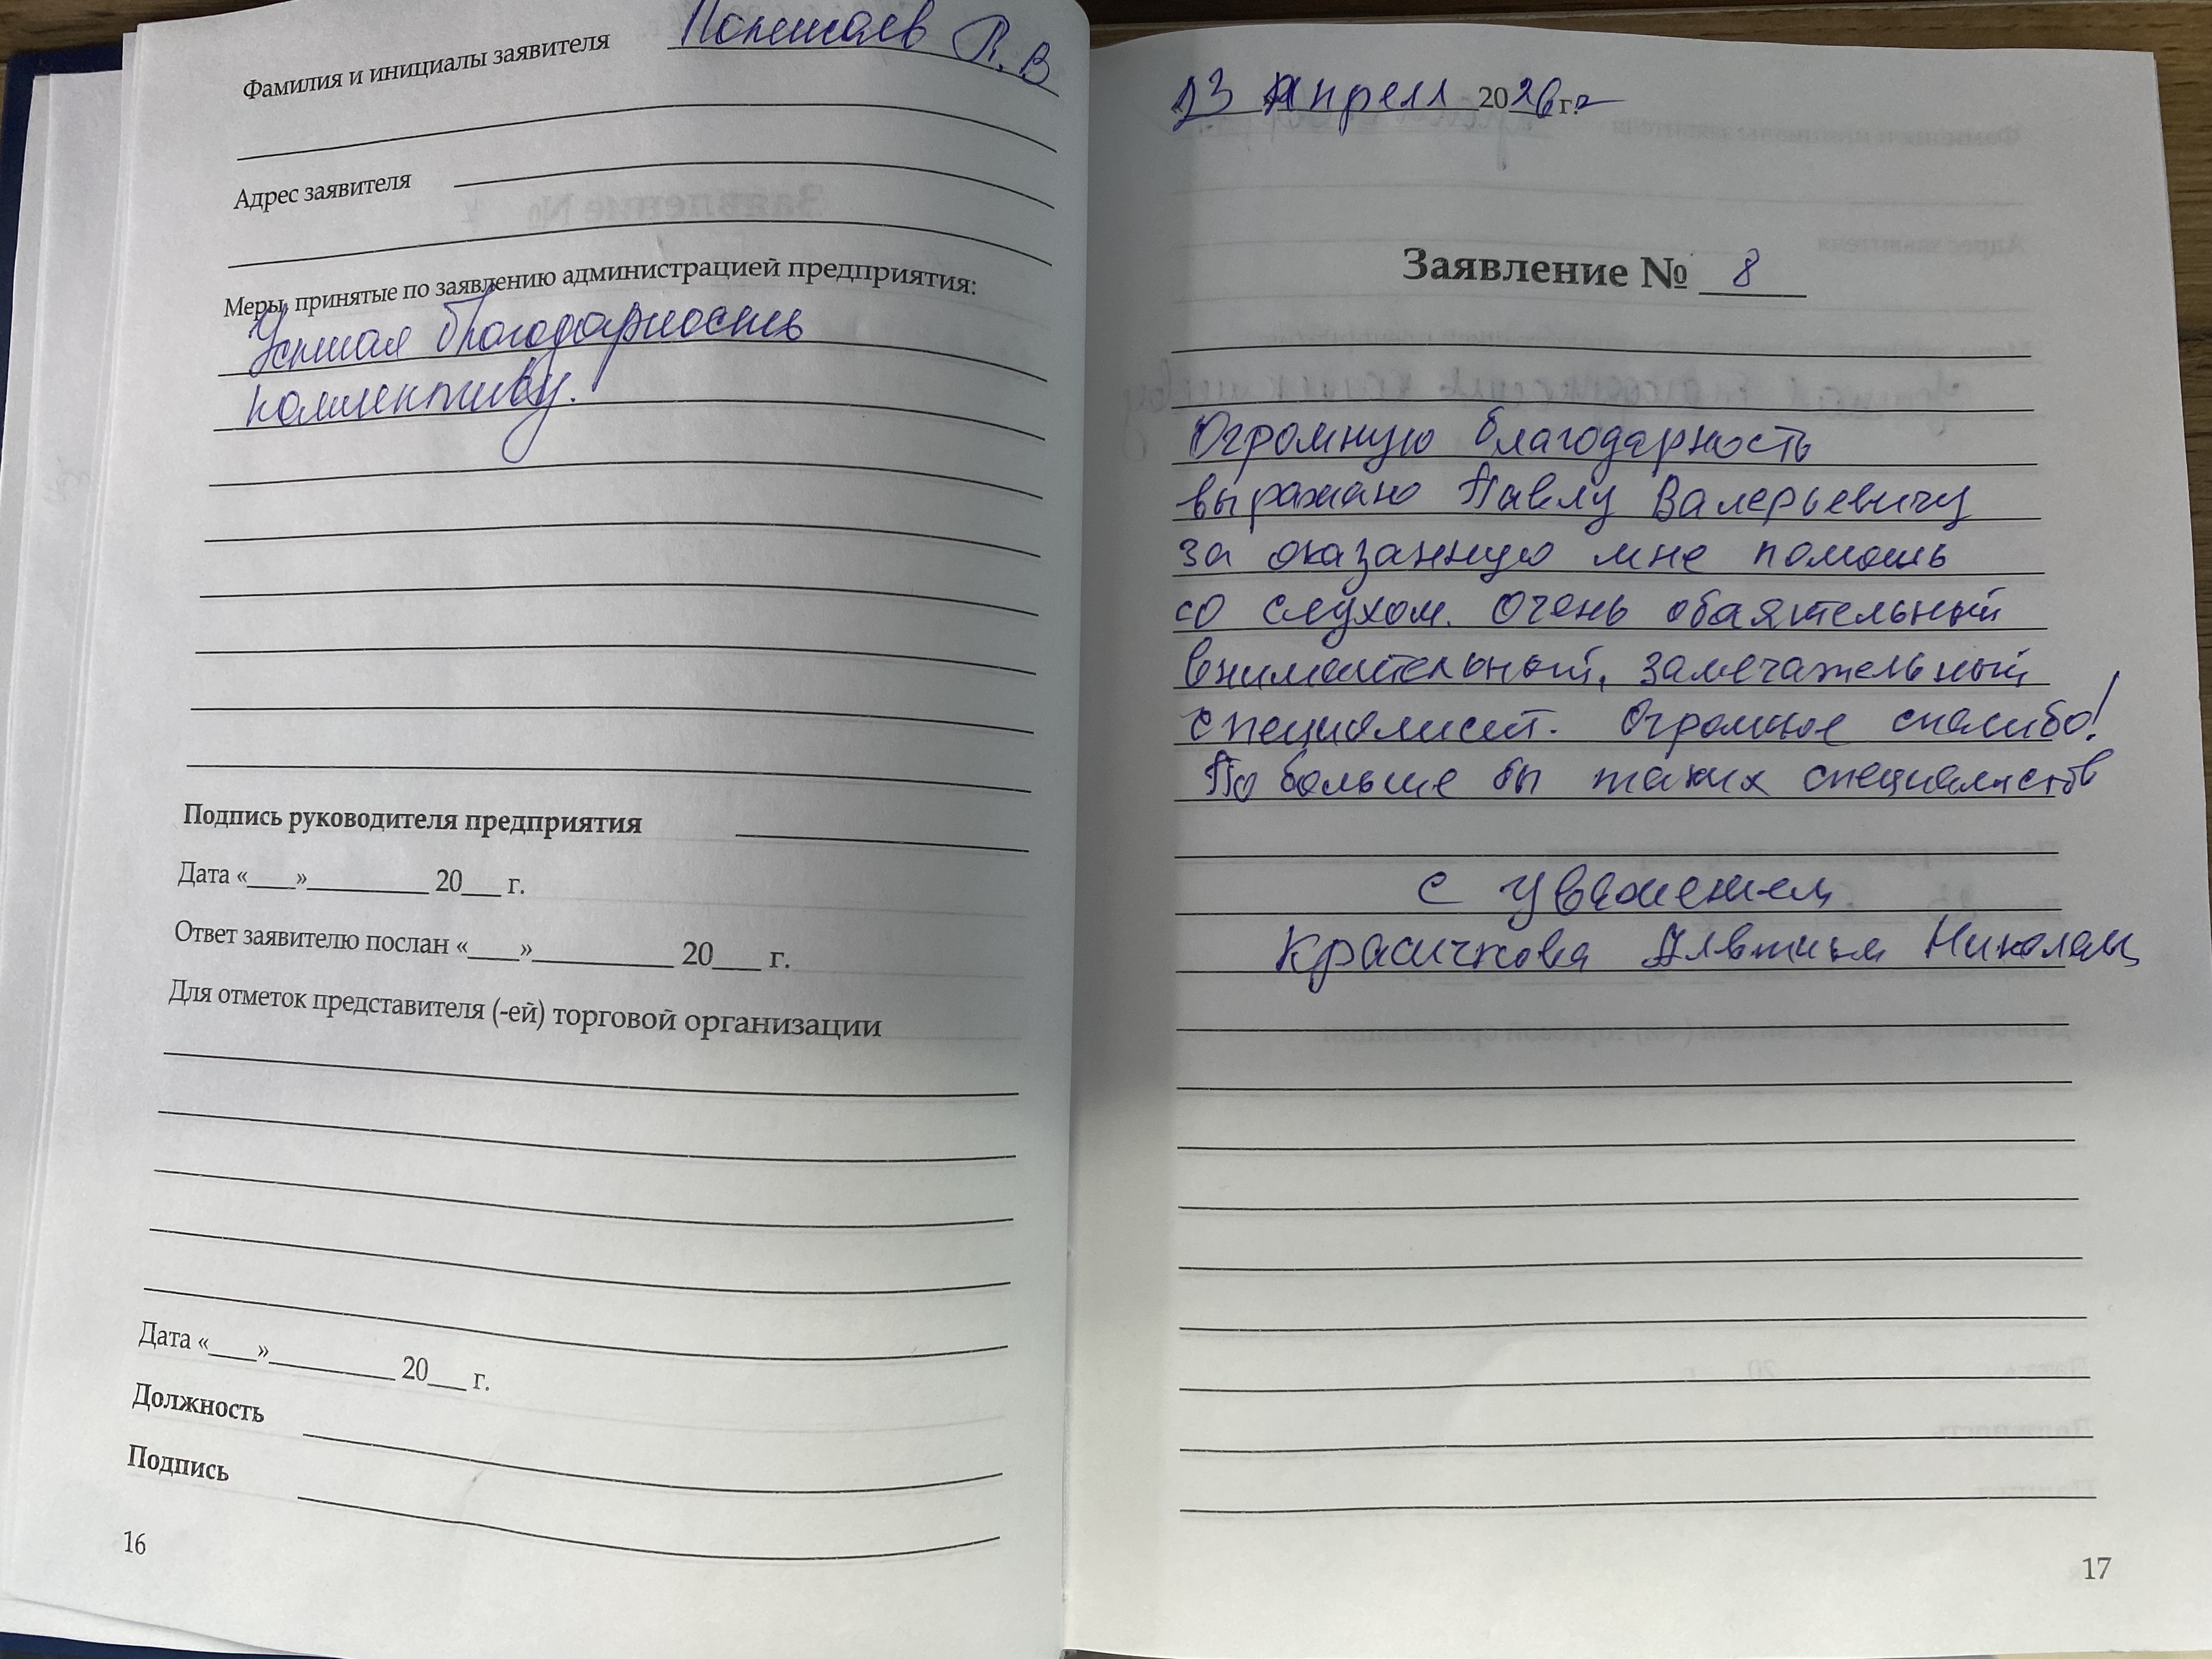 Фамилия и инициалы заявителя Полетаев П. В
Адрес заявителя
Меры, принятые по заявлению администрацией предприятия:
Устная благодарность
коллективу.
Подпись руководителя предприятия
Дата «___»_________ 20___ г.
Ответ заявителю послан «___»_________ 20___ г.
Для отметок представителя (-ей) торговой организации
Дата «___»_________ 20___ г.
Должность
Подпись
16
23 Апреля 2026 г.
Заявление № 8
Огромную благодарность
выражаю Павлу Валерьевичу
за оказанную мне помошь
со слухом. Очень обаятельный
внимательный, замечательный
специалист. Огромное спасибо!
По больше бы таких специалиств
с уважением
Красичкова Николаев
17